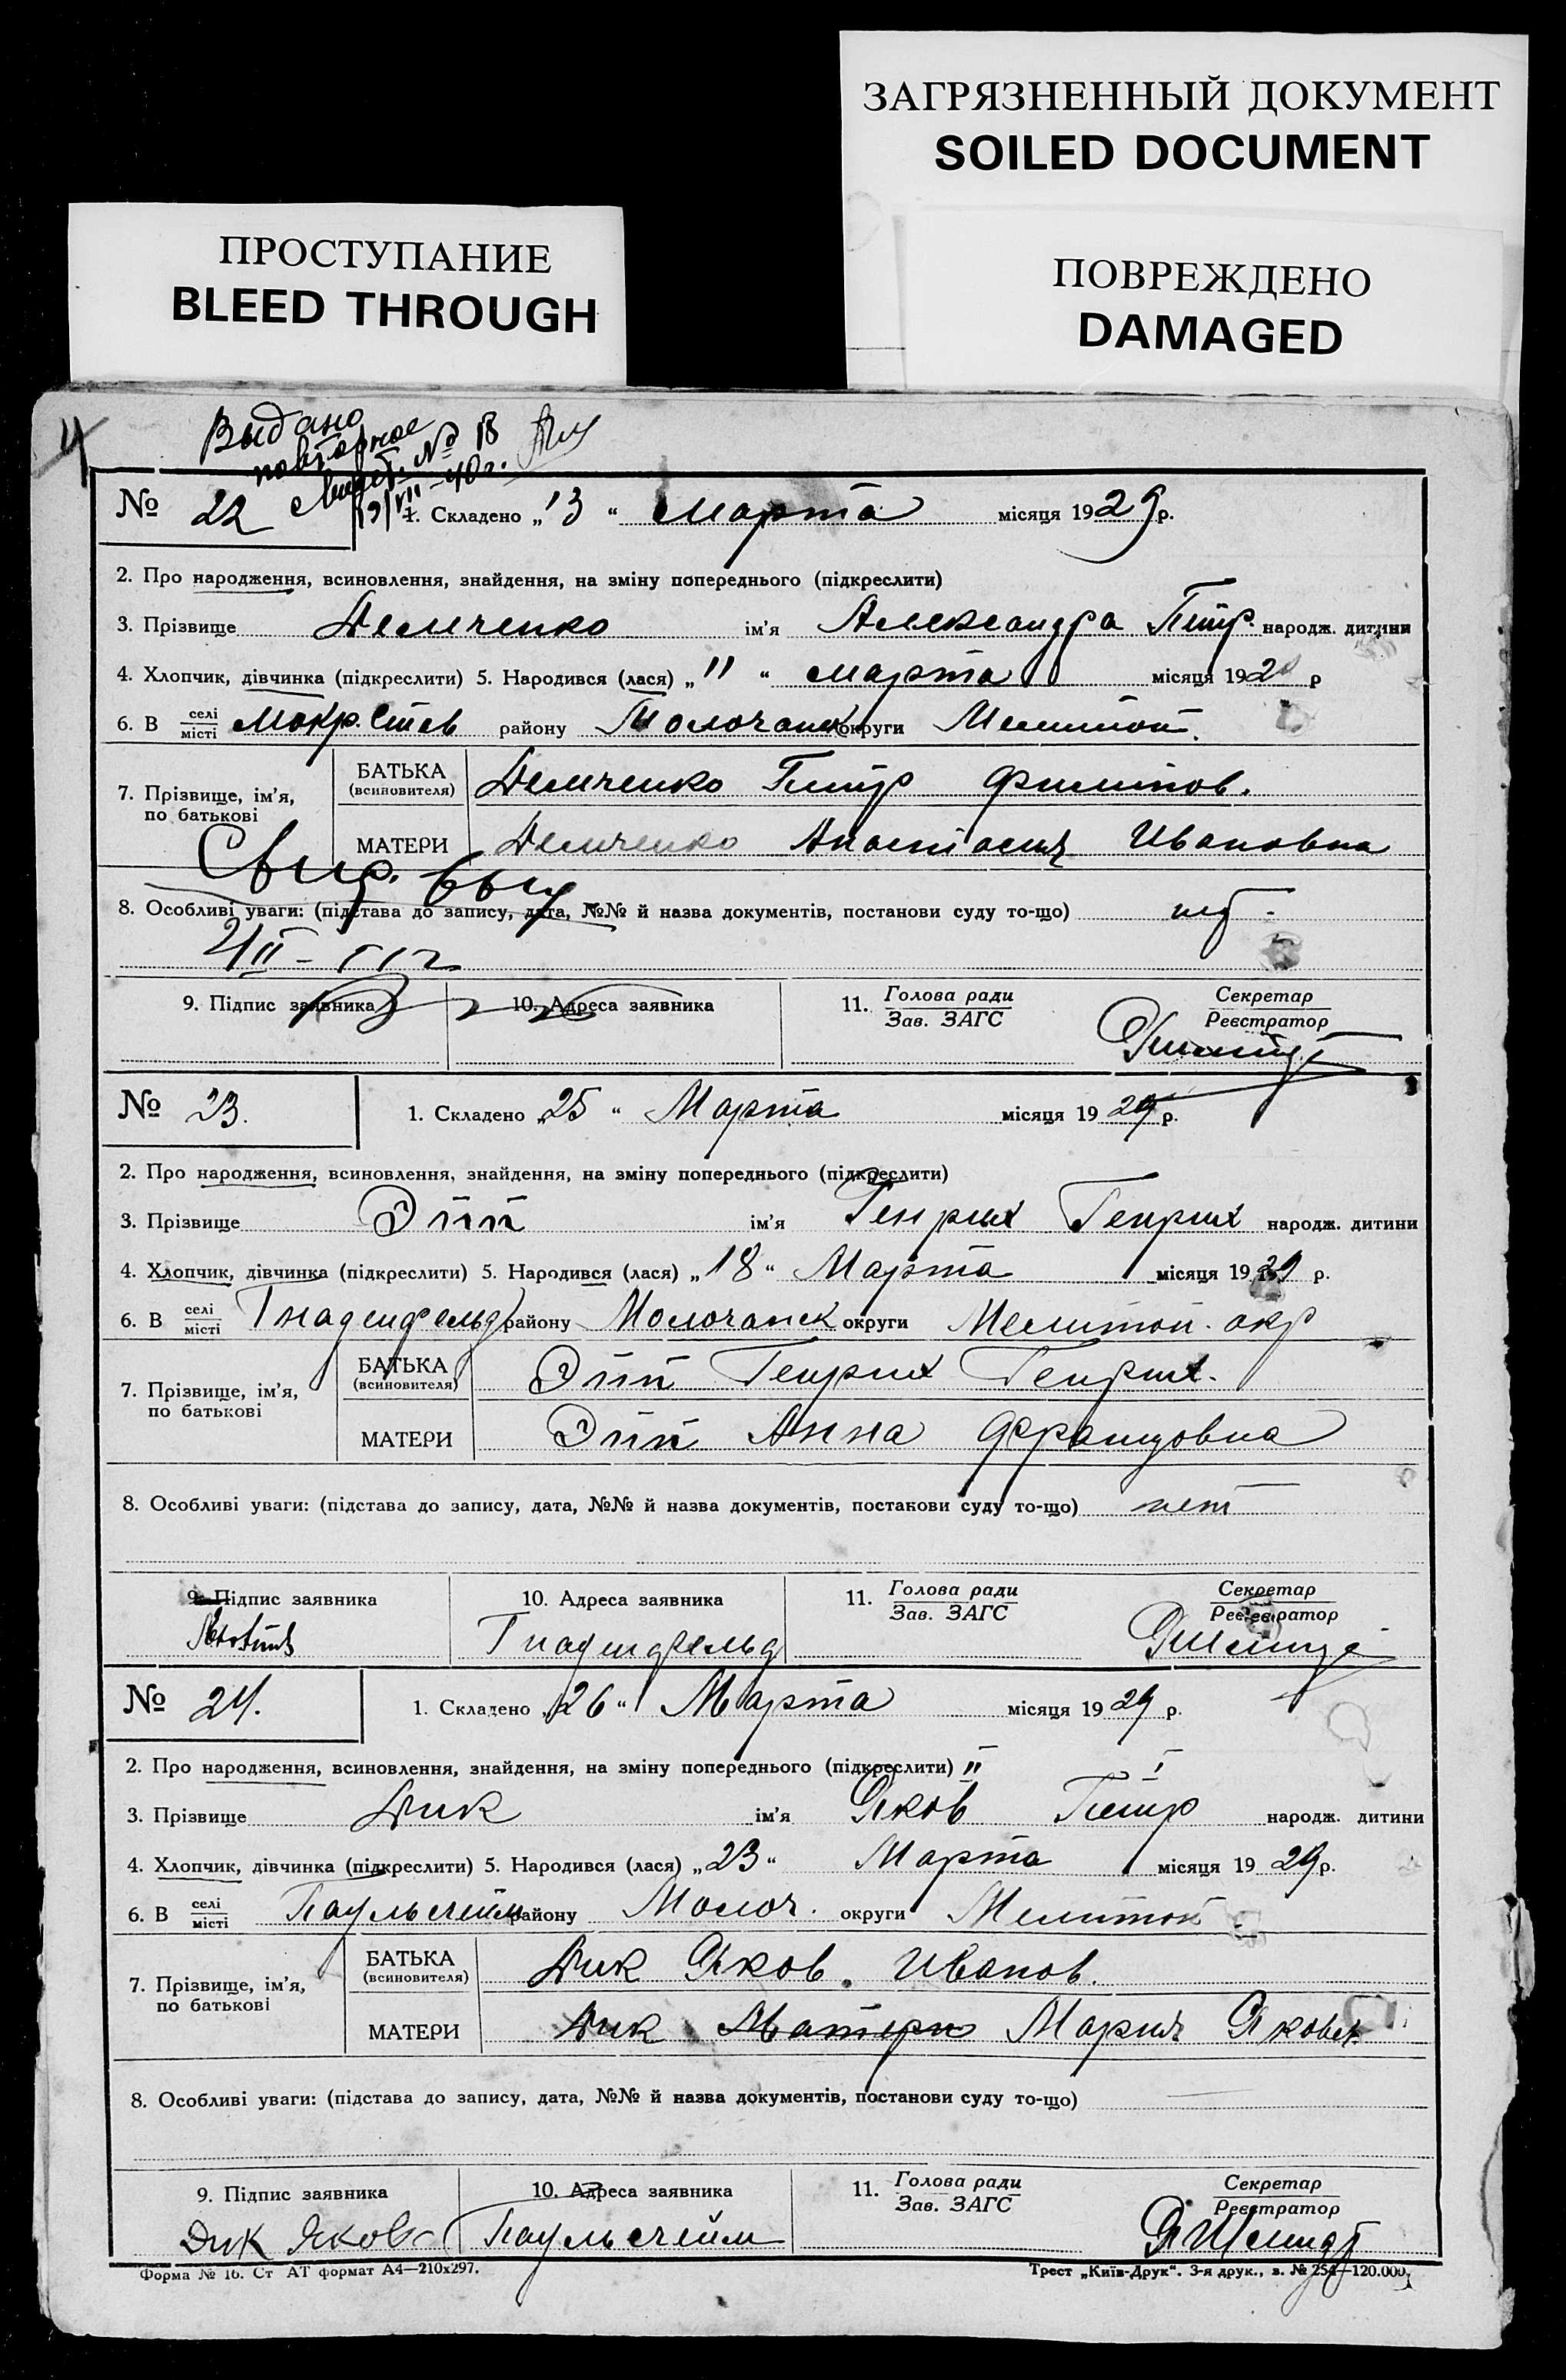 ЗАГРЯЗНЕННЫЙ ДОКУМЕНТ
SOILED DOCUMENT
ПРОСТУПАНИЕ
BLEED THROUGH
ПОВРЕЖДЕНО
DAMAGED
4
Выдано
повторное
свидет. №
№ 22 1. Складено „13“ Марта місяця 1929 р.
2. Про народження, всиновлення, знайдення, на зміну попереднього (підкреслити)
3. Прізвище Демченко ім'я Александра Петр. народж. дитини
4. Хлопчик, дівчинка (підкреслити) 5. Народився (лася) „11“ марта місяця 192 р
6. В селі місті Мокр. району Молочанск округи Мелитоп.
7. Прізвище, ім'я, по батькові
БАТЬКА (всиновителя) Демченко Петр Филипов.
МАТЕРИ Демченко Анастасия Ивановна
Свид. выд
8. Особливі уваги: (підстава до запису, дата, №№ й назва документів, постанови суду то-що)
9. Підпис заявника 10. Адреса заявника 11. Голова ради Зав. ЗАГС Секретар Реєстратор
№ 23. 1. Складено „25“ Марта місяця 1929 р.
2. Про народження, всиновлення, знайдення, на зміну попереднього (підкреслити)
3. Прізвище Эпп ім'я Генрих Генрих народж. дитини
4. Хлопчик, дівчинка (підкреслити) 5. Народився (лася) „18“ Марта місяця 1929 р.
6. В селі місті Гнаденфельд району Молочанск округи Мелитоп. окр
7. Прізвище, ім'я, по батькові
БАТЬКА (всиновителя) Эпп Генрих Генрих.
МАТЕРИ Эпп Анна Францовна
8. Особливі уваги: (підстава до запису, дата, №№ й назва документів, постанови суду то-що) нет
9. Підпис заявника 10. Адреса заявника 11. Голова ради Зав. ЗАГС Секретар Реєстратор
Гнаденфельд
№ 24. 1. Складено „26“ Марта місяця 1929 р.
2. Про народження, всиновлення, знайдення, на зміну попереднього (підкреслити) II I
3. Прізвище Дик ім'я Яков Петр народж. дитини
4. Хлопчик, дівчинка (підкреслити) 5. Народився (лася) „23“ Марта місяця 1929 р.
6. В селі місті Паульсгейм району Молоч. округи Мелитоп
7. Прізвище, ім'я, по батькові
БАТЬКА (всиновителя) Дик Яков. Иванов.
МАТЕРИ Дик Матери Мария Яковл.
8. Особливі уваги: (підстава до запису, дата, №№ й назва документів, постанови суду то-що)
9. Підпис заявника 10. Адреса заявника 11. Голова ради Зав. ЗАГС Секретар Реєстратор
Дик Яков Паульсгейм Я Шмидт
Форма № 16. Ст АТ формат А4—210x297. Трест „Київ-Друк“. 3-я друк., з. № 254—120.000.